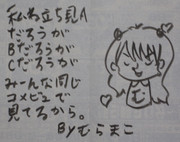 私も立ち見A
だろうが
Bだろうが
Cだろうが
みーんな同じ
コメビュで
見てるから。
Byむらまこ
む